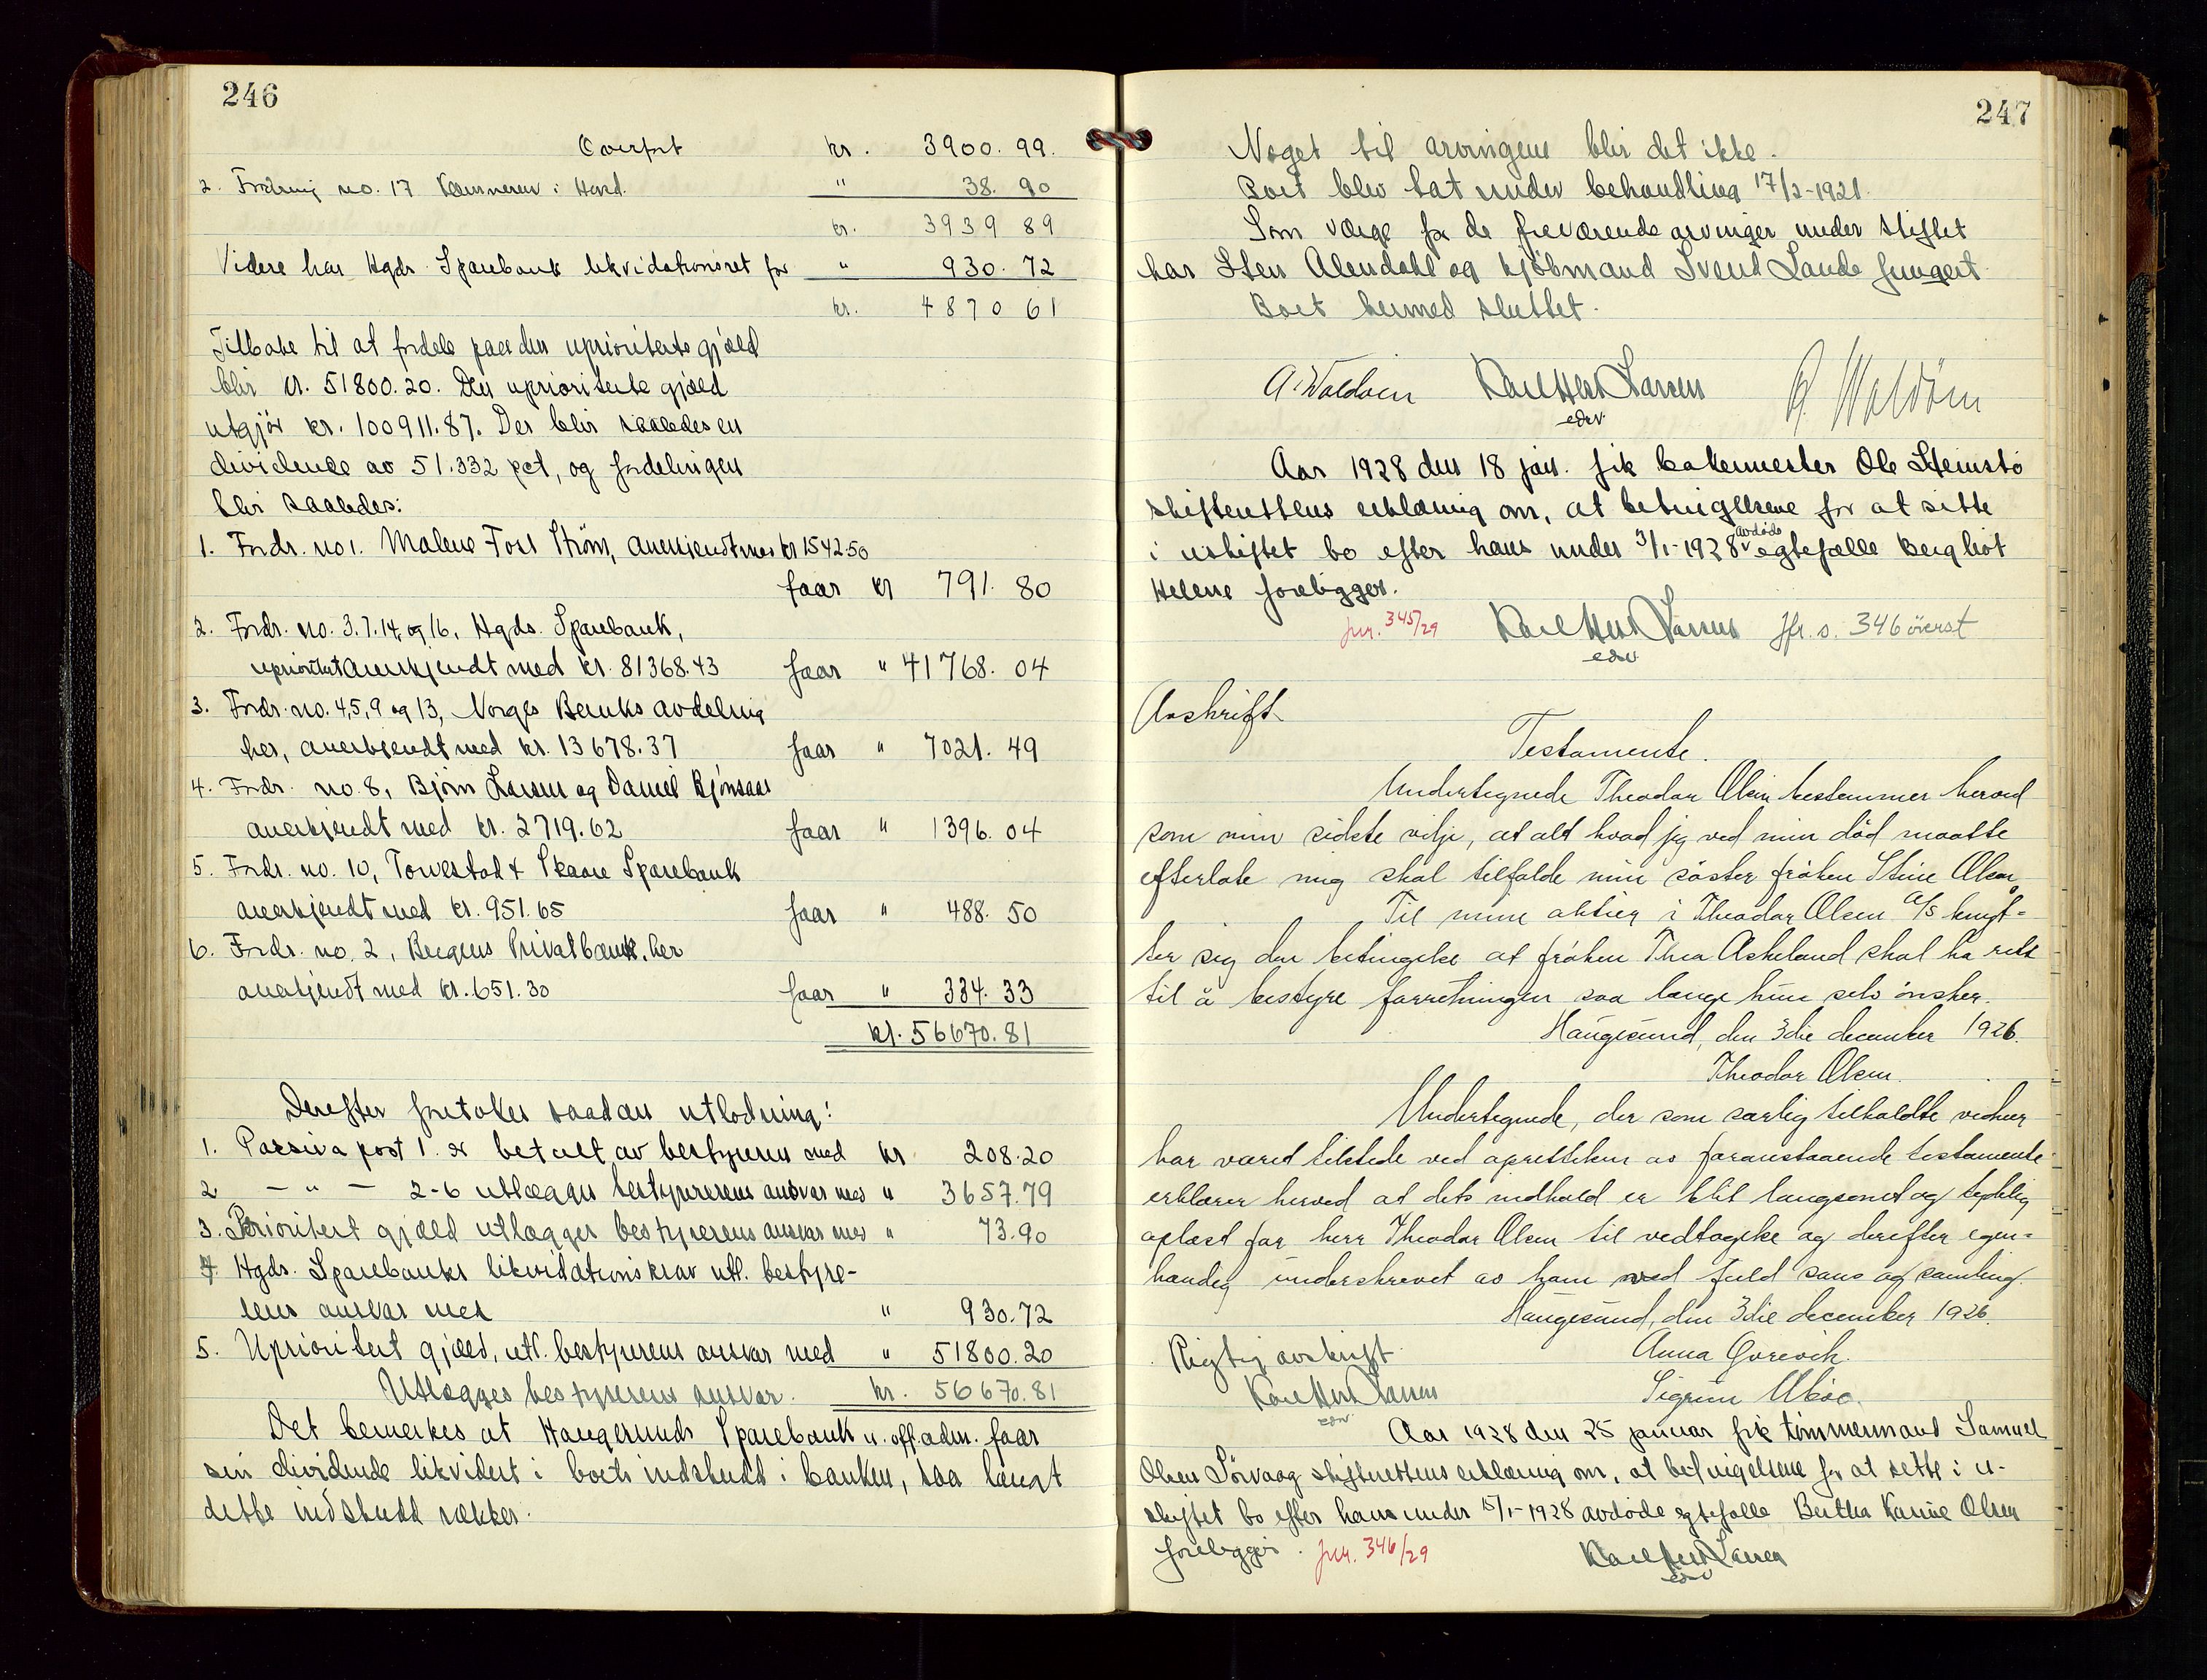 246
Overført kr. 3900.99.
2. Fordring no. 17 Kæmneren i Hgsd. " 38.90
kr. 3939 89
Videre har Hgds. Sparebank likvidationsret for " 930.72
kr. 4870 61
Tilbake til at fordele paa den uprioriterte gjæld
blir kr. 51800.20. Den uprioriterte gjæld
utgjör kr. 100911.87. Der blir saaledes en
dividende av 51.332 pct, og fordelingen
blir saaledes:
1. Fordr. no 1. Malene Foss Ström, anerkjendt med kr 1542.50
faar kr 791.80
2. Fordr. no. 3.7.14, og 16, Hgds. Sparebank,
uprioritert anerkjendt med kr. 81368.43 faar " 41768.04
3. Fordr. no. 4,5,9 og 13, Norges Banks avdeling
her, anerkjendt med kr. 13678.37 faar " 7021.49
4. Fordr. no. 8, Björn Larsen og Daniel
anerkjendt med kr. 2719.62 faar " 1396.04
5. Fordr. no. 10, Torvestad & Skaare Sparebank
anerkjendt med kr. 951.65 faar " 488.50
6. Fordr. no. 2, Bergens Privatbank, her
anerkjendt med kr. 651.30 faar " 334.33
kr. 56670.81
Derefter foretokes saadan utlodning:
1. Passiva post 1. er betalt av bestyreren med kr 208.20
2 — " — 2-6 utlægges bestyrerens ansvar med " 3657.79
3. Prioritert gjæld utlægges bestyrerens ansvar med " 73.90
4. Hgds. Sparebanks likvidationskrav utl. bestyre-
rens ansvar med " 930.72
5. Uprioritert gjæld, utl. bestyrerens ansvar med " 51800.20
Utlægges bestyrerens ansvar. kr. 56670.81
Det bemerkes at Haugesunds Sparebank u. off. adm. faar
sin dividende likvidert i boets indskudd i banken, saa langt
dette indskudd rækker.
247
Noget til arvingene blir det ikke.
Boet blev tat under behandling 17/2-1921.
Som værge for de fraværende arvinger under skiftet
har Sten Alendahl og kjøbmand Svend Lande fungert.
Boet hermed sluttet.
A. Waldøen Karl Herl. Larsen
edsv
Aar 1928 den 18 jan. fik bakermester Ole Steinsto
skifterettens erklæring om, at betingelsene for at sitte
i uskiftet bo efter hans under 3/1-1928 avdøde egtefælle Bergliot
Helene foreligger.
jnr. 345/29 Karl Herl. Larsen jfr. s. 346 överst
edsv
Avskrift
Testamente.
Undertegnede Theodor Olsen bestemmer herved
som min sidste vilje, at alt hvad jeg ved min död maatte
efterlate mig skal tilfalde min söster fröken Stine Olsen
Til mine aktier i Theodor Olsen A/S knyt-
ter sig den betingelse at fröken Thea Askeland skal ha rett
til å bestyre forretningen saa lenge hun selv önsker.
Haugesund, den 3die december 1926.
Theodor Olsen.
Undertegnede, der som særlig tilkaldte vidner
har været tilstede ved oprettelsen av foranstaaende testamente
erklærer herved at dets indhold er blit langsomt og tydelig
oplæst for herr Theodor Olsen til vedtagelse og derefter egen-
hændig underskrevet av ham ved fuld sans og samling.
Haugesund, den 3die december 1926.
Rigtig avskrift. Anna
Karl Herl. Larsen Sigrun
edsv
Aar 1928 den 25 januar fik tömmermand Samuel
Olsen Sörvaag skifterettens erklæring om, at betingelsene for at sitte i u-
skiftet bo efter hans under 15/1-1928 avdöde egtefælle Bertha Karine Olsen
foreligger. jnr. 346/29 Karl Herl. Larsen
edsv